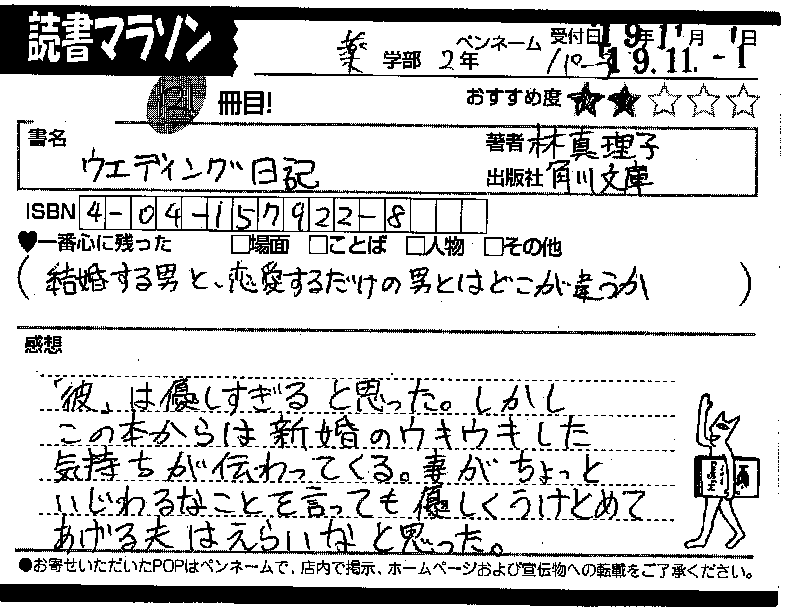 読書マラソン
薬 学部 2年 ペンネーム 受付日 19年11月1日
19.11.-1
冊目!
おすすめ度 ★★☆☆☆
書名 ウエディング日記
著者 林真理子
出版社 角川文庫
ISBN 4-04-157922-8
♥一番心に残った □場面 □ことば □人物 □その他
(結婚する男と、恋愛するだけの男とはどこが違うか)
感想
「彼」は優しすぎると思った。しかし
この本からは新婚のウキウキした
気持ちが伝わってくる。妻がちょっと
いじわるなことを言っても優しくうけとめて
あげる夫はえらいなと思った。
●お寄せいただいたPOPはペンネームで、店内で掲示、ホームページおよび宣伝物への転載をご了承ください。